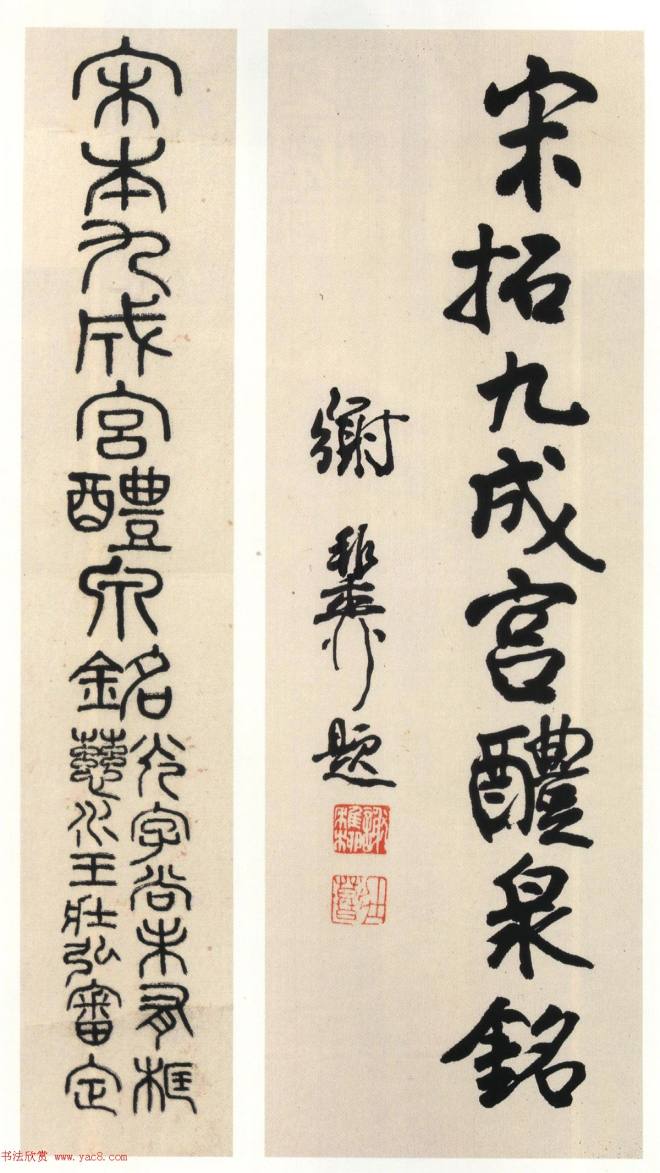 宋拓九成宮醴泉銘
謝稚柳題
謝稚柳
壯暮
宋本九成宮醴泉銘
光字尚未有框
慈水王壯弘審定
书法欣赏 www.yac8.com